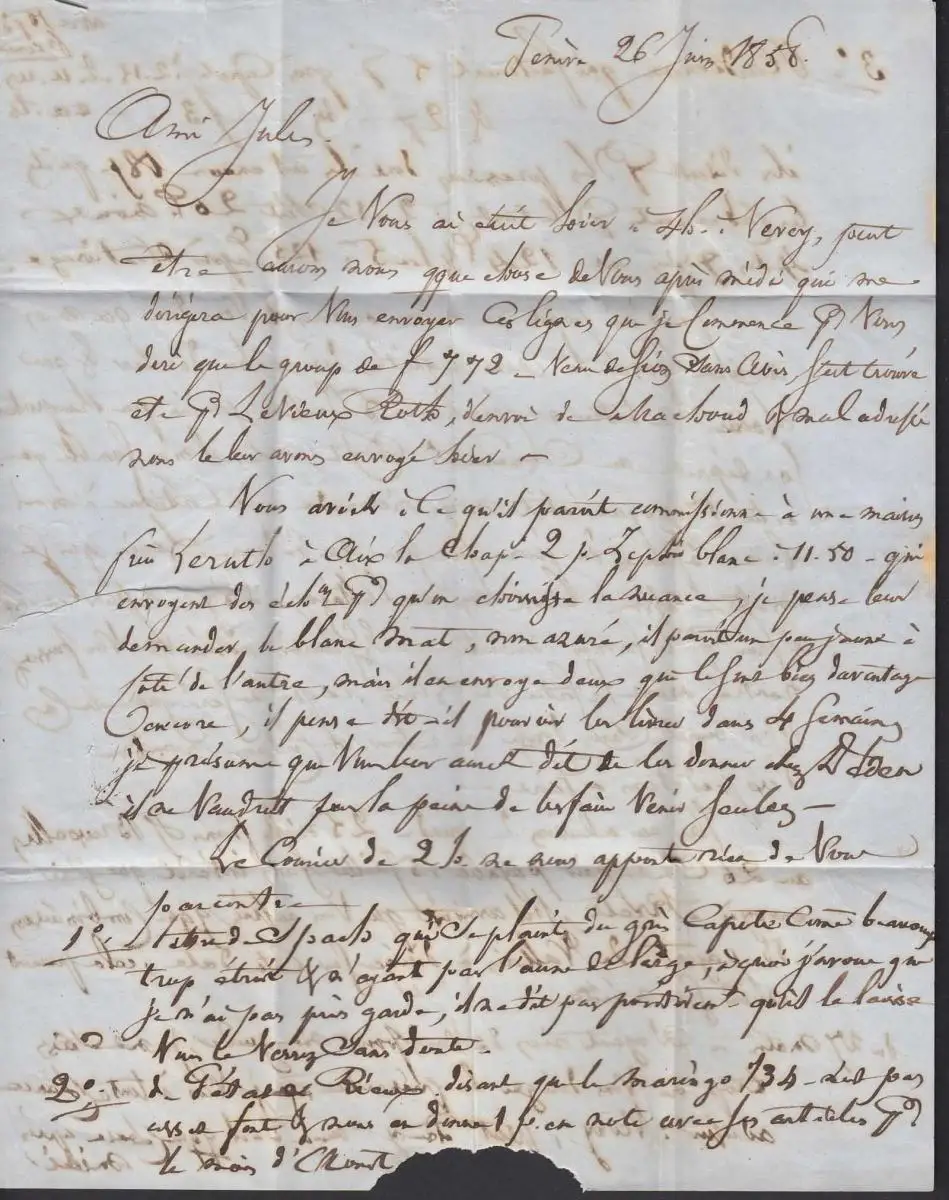 Genève 26 Juin 1858.
Ami Jules.
Je Vous ai écrit hier à 4h. à Vevey, peut
être aurons nous qque chose de Vous après midi qui me
dirigera pour Vous envoyer ces lignes que je Commence pr Vous
dire que le group de f 772 - Venu de Sion Sans Avis s'est trouvé
être pr LeVieux Roth, d'envoi de & mal adressé
nous le leur avons envoyé hier -
Vous à ce qu'il parait commissionné à une maison
à Aix la Chap. 2 p. Zephir blanc à 11.50 - qui
envoyent des échns pr qu'on choisisse la nuance, je pense leur
demander le blanc mat, non azuré, il parait un peu jaune à
côté de l'autre, mais il en envoye deux que le sont bien davantage
encore, il pense dit-il pouvoir les livrer dans 4 Semaines
je présume que Vous leur aurez dit de les donner chez
il ne Vaudrait pas la peine de les faire Venir Seules -
Le Courier de 2 h. ne nous apporte rien de Vous
par contre
1o. lettre de Spach qui se plaint du gris Capote Comme beaucoup
trop étroit & n'ayant pas l'aune de large, à quoi j'avoue que
je n'ai pas pris garde, il ne dit pas qu'il le laisse
Vous le Verrez Sans doute.
2o. de Rieux disant que le marengo 734 - n'est pas
assez fort & nous en donnent p. en note avec ses articles pr
le mois d'